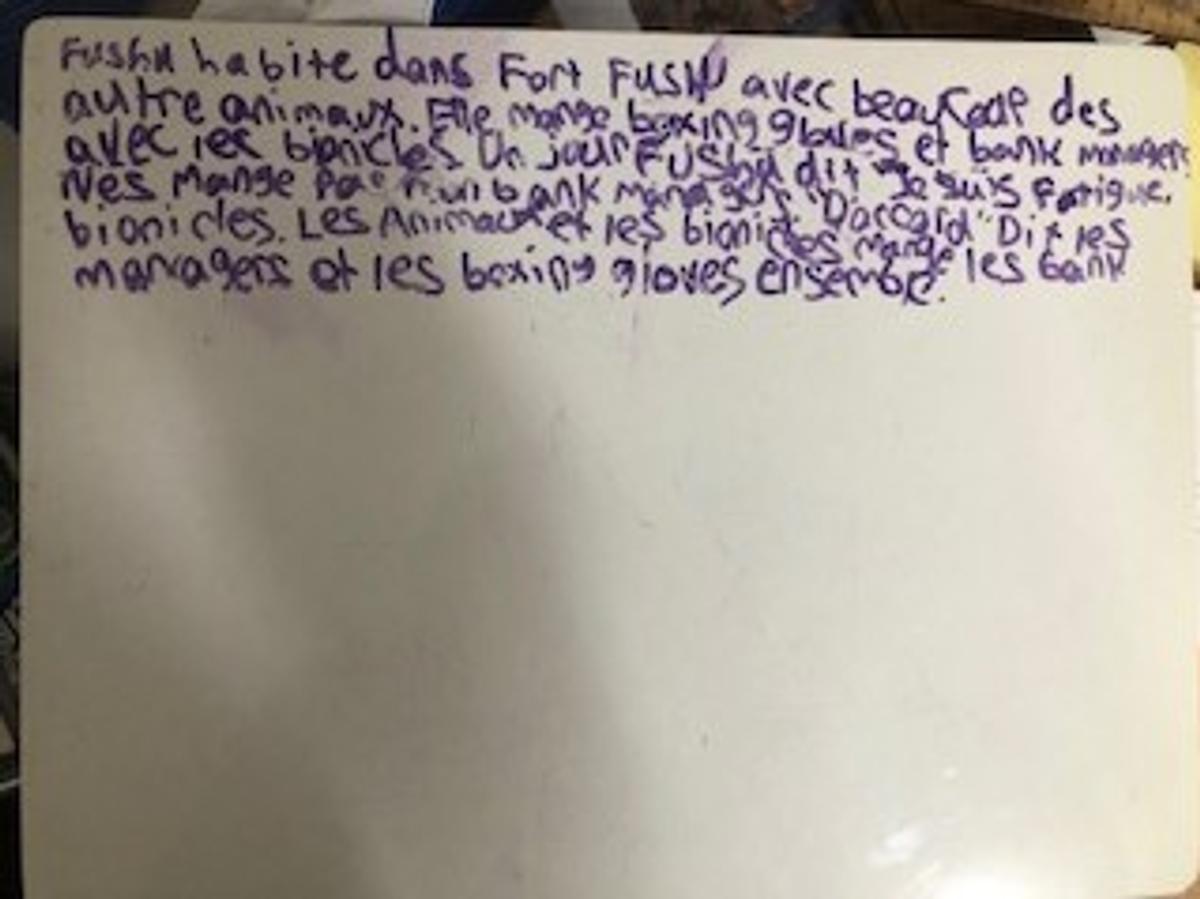 Fushu habite dans Fort Fushu avec beaucoup des
autre animaux. Elle mange boxing gloves et bank managers
avec les bionicles. Un jour Fushu dit "Je suis fatigue.
Nes mange pas un bank managers "Daccard" Dit les
bionicles. Les Animaux et les bionicles mange les bank
managers et les boxing gloves ensemble.